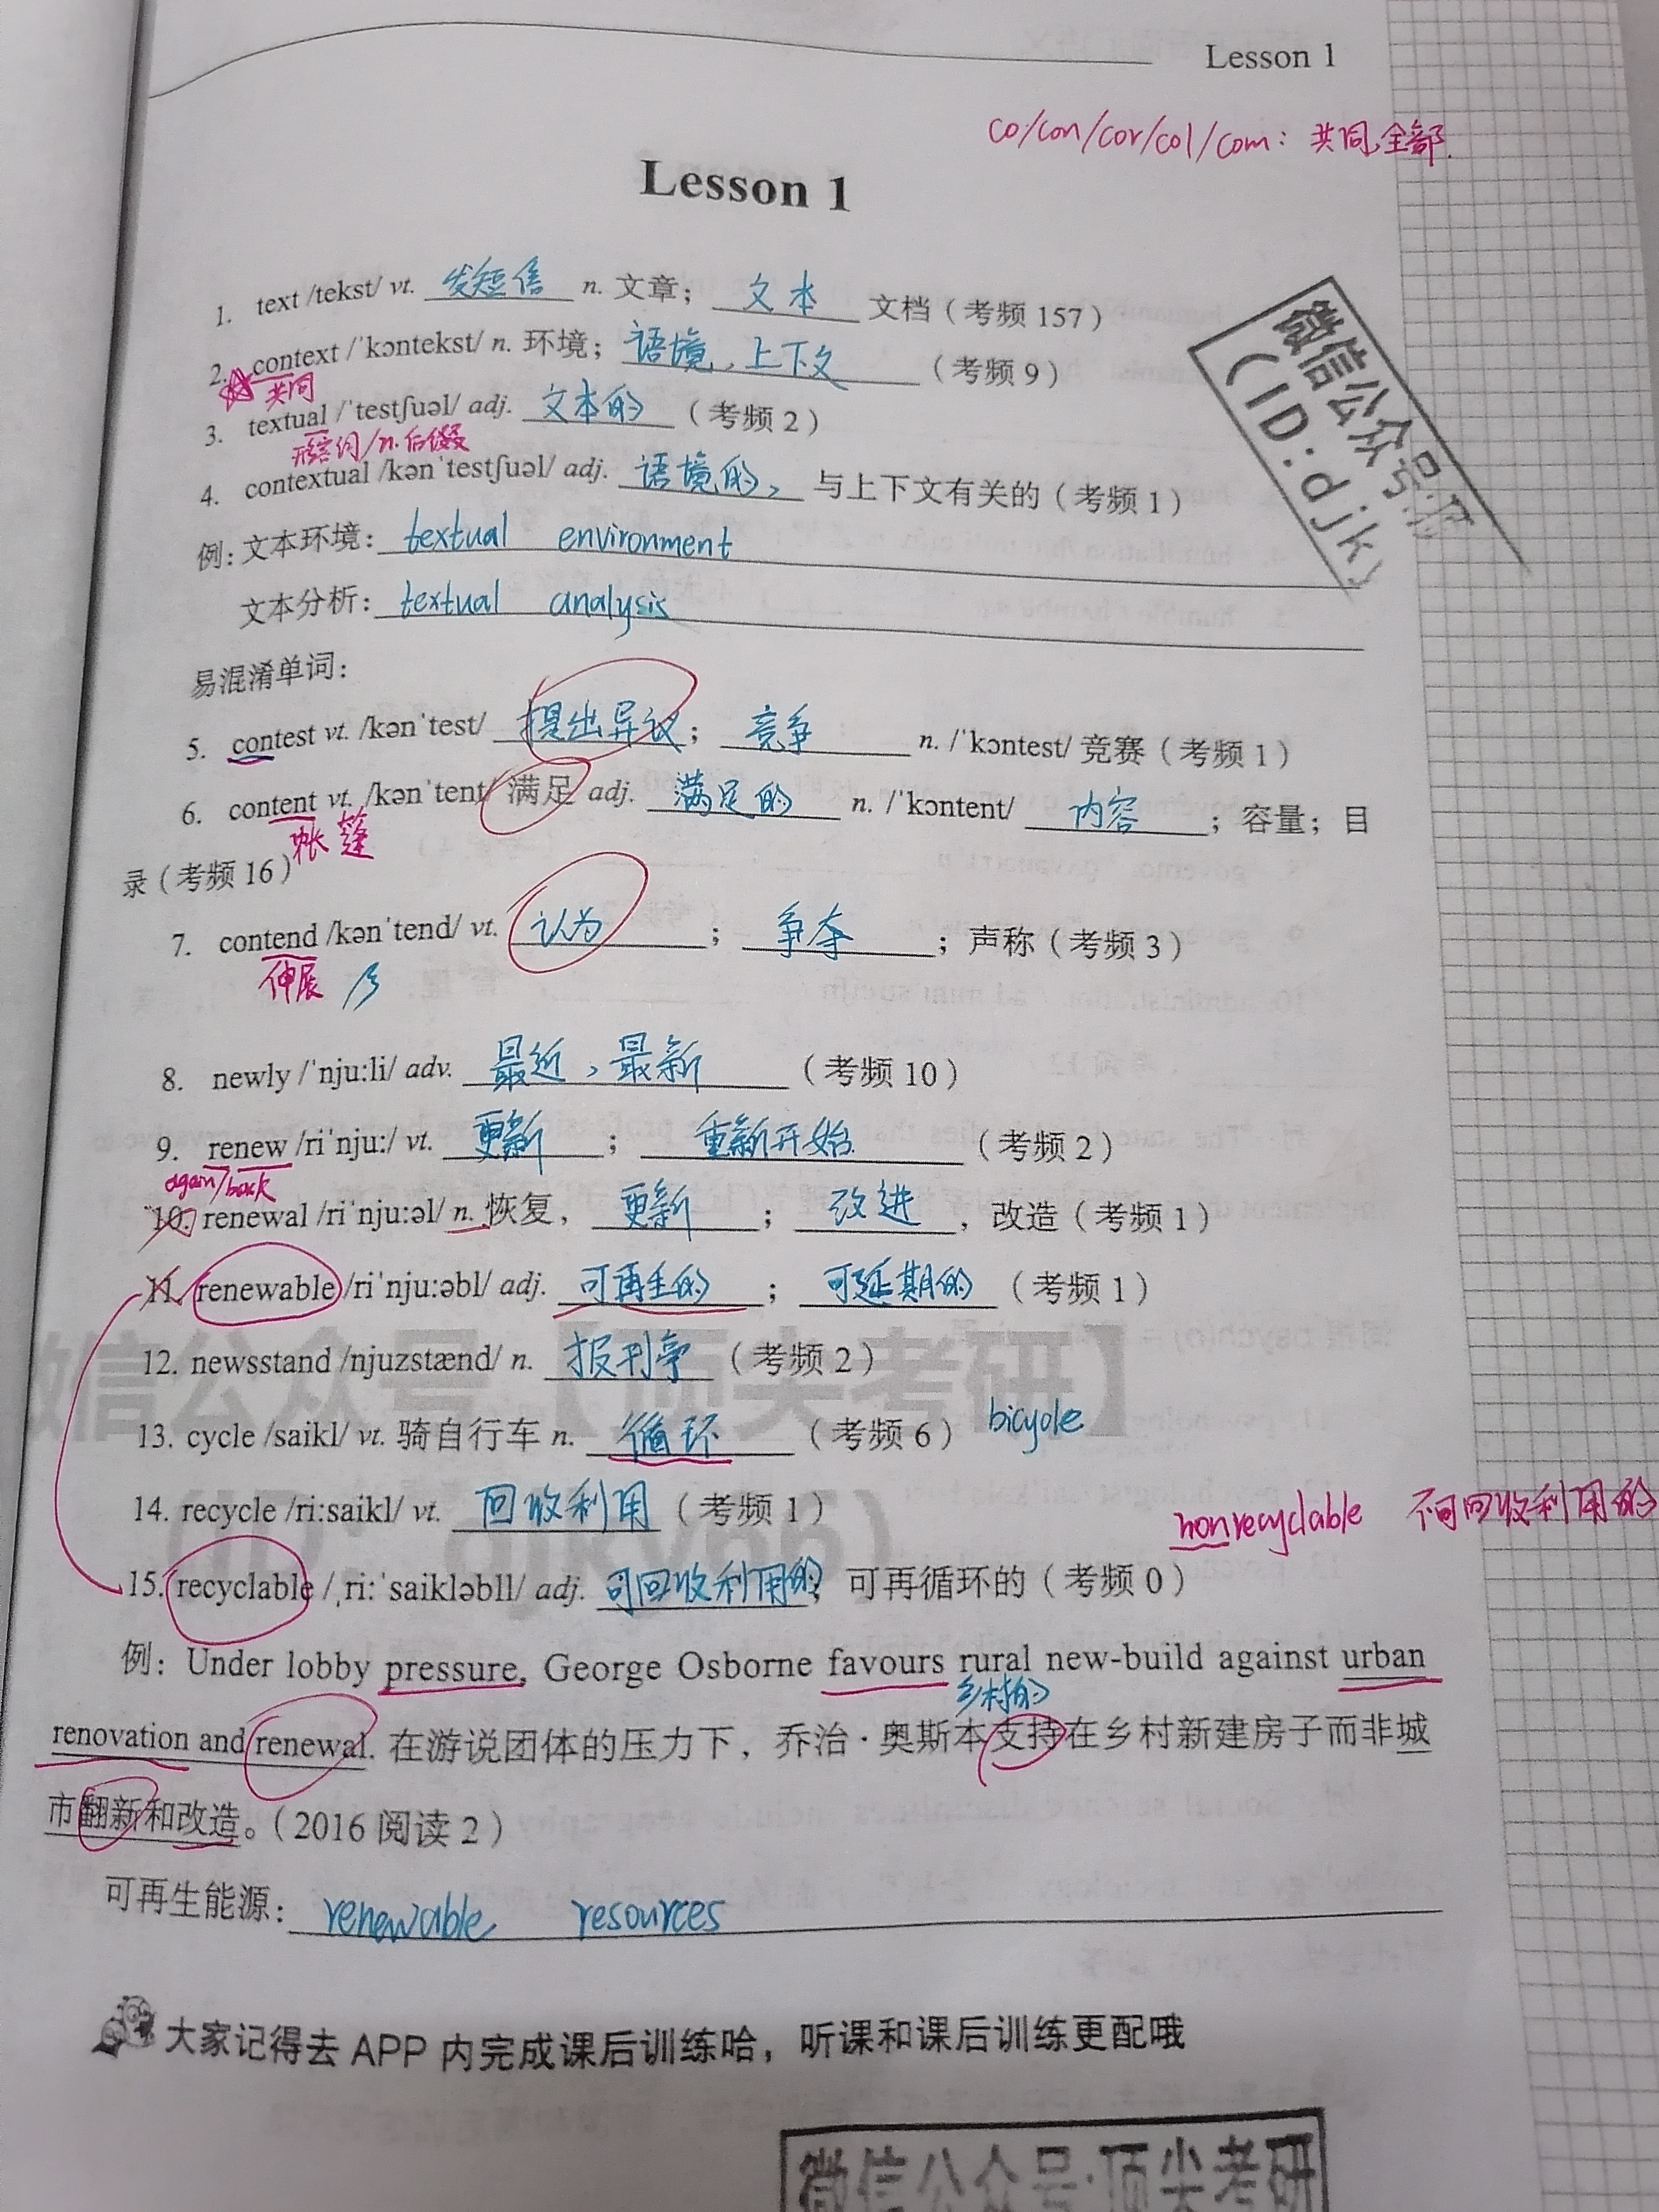 Lesson 1
co/con/cor/col/com: 共同,全部.
Lesson 1
1. text /tekst/ vt. 发短信 n. 文章; 文本 文档(考频 157)
2. context /ˈkɔntekst/ n. 环境; 语境,上下文 (考频 9)
共同
3. textual /ˈtestʃuəl/ adj. 文本的 (考频 2)
形容词/n.后缀
4. contextual /kənˈtestʃuəl/ adj. 语境的, 与上下文有关的(考频 1)
例: 文本环境: textual environment
文本分析: textual analysis
易混淆单词:
5. contest vt. /kənˈtest/ 提出异议; 竞争 n. /ˈkɔntest/ 竞赛(考频 1)
6. content vt. /kənˈtent/ 满足 adj. 满足的 n. /ˈkɔntent/ 内容; 容量; 目
帐篷
录(考频 16)
7. contend /kənˈtend/ vt. 认为; 争夺; 声称(考频 3)
伸展
8. newly /ˈnju:li/ adv. 最近,最新 (考频 10)
9. renew /riˈnju:/ vt. 更新; 重新开始 (考频 2)
again/back
10. renewal /riˈnju:əl/ n. 恢复, 更新; 改进, 改造(考频 1)
11. renewable /riˈnju:əbl/ adj. 可再生的; 可延期的 (考频 1)
12. newsstand /njuzstænd/ n. 报刊亭 (考频 2)
13. cycle /saikl/ vt. 骑自行车 n. 循环 (考频 6) bicycle
14. recycle /ri:saikl/ vt. 回收利用 (考频 1)
nonrecyclable 不可回收利用的
15. recyclable /ˌri:ˈsaikləbll/ adj. 可回收利用的; 可再循环的(考频 0)
例: Under lobby pressure, George Osborne favours rural new-build against urban
乡村的
renovation and renewal. 在游说团体的压力下, 乔治·奥斯本支持在乡村新建房子而非城
市翻新和改造。(2016 阅读 2)
可再生能源: renewable resources
大家记得去 APP 内完成课后训练哈, 听课和课后训练更配哦
微信公众号·顶尖考研
微信公众号【顶尖考研】
(ID: djky66)
微信公众号:顶
(ID:djk)